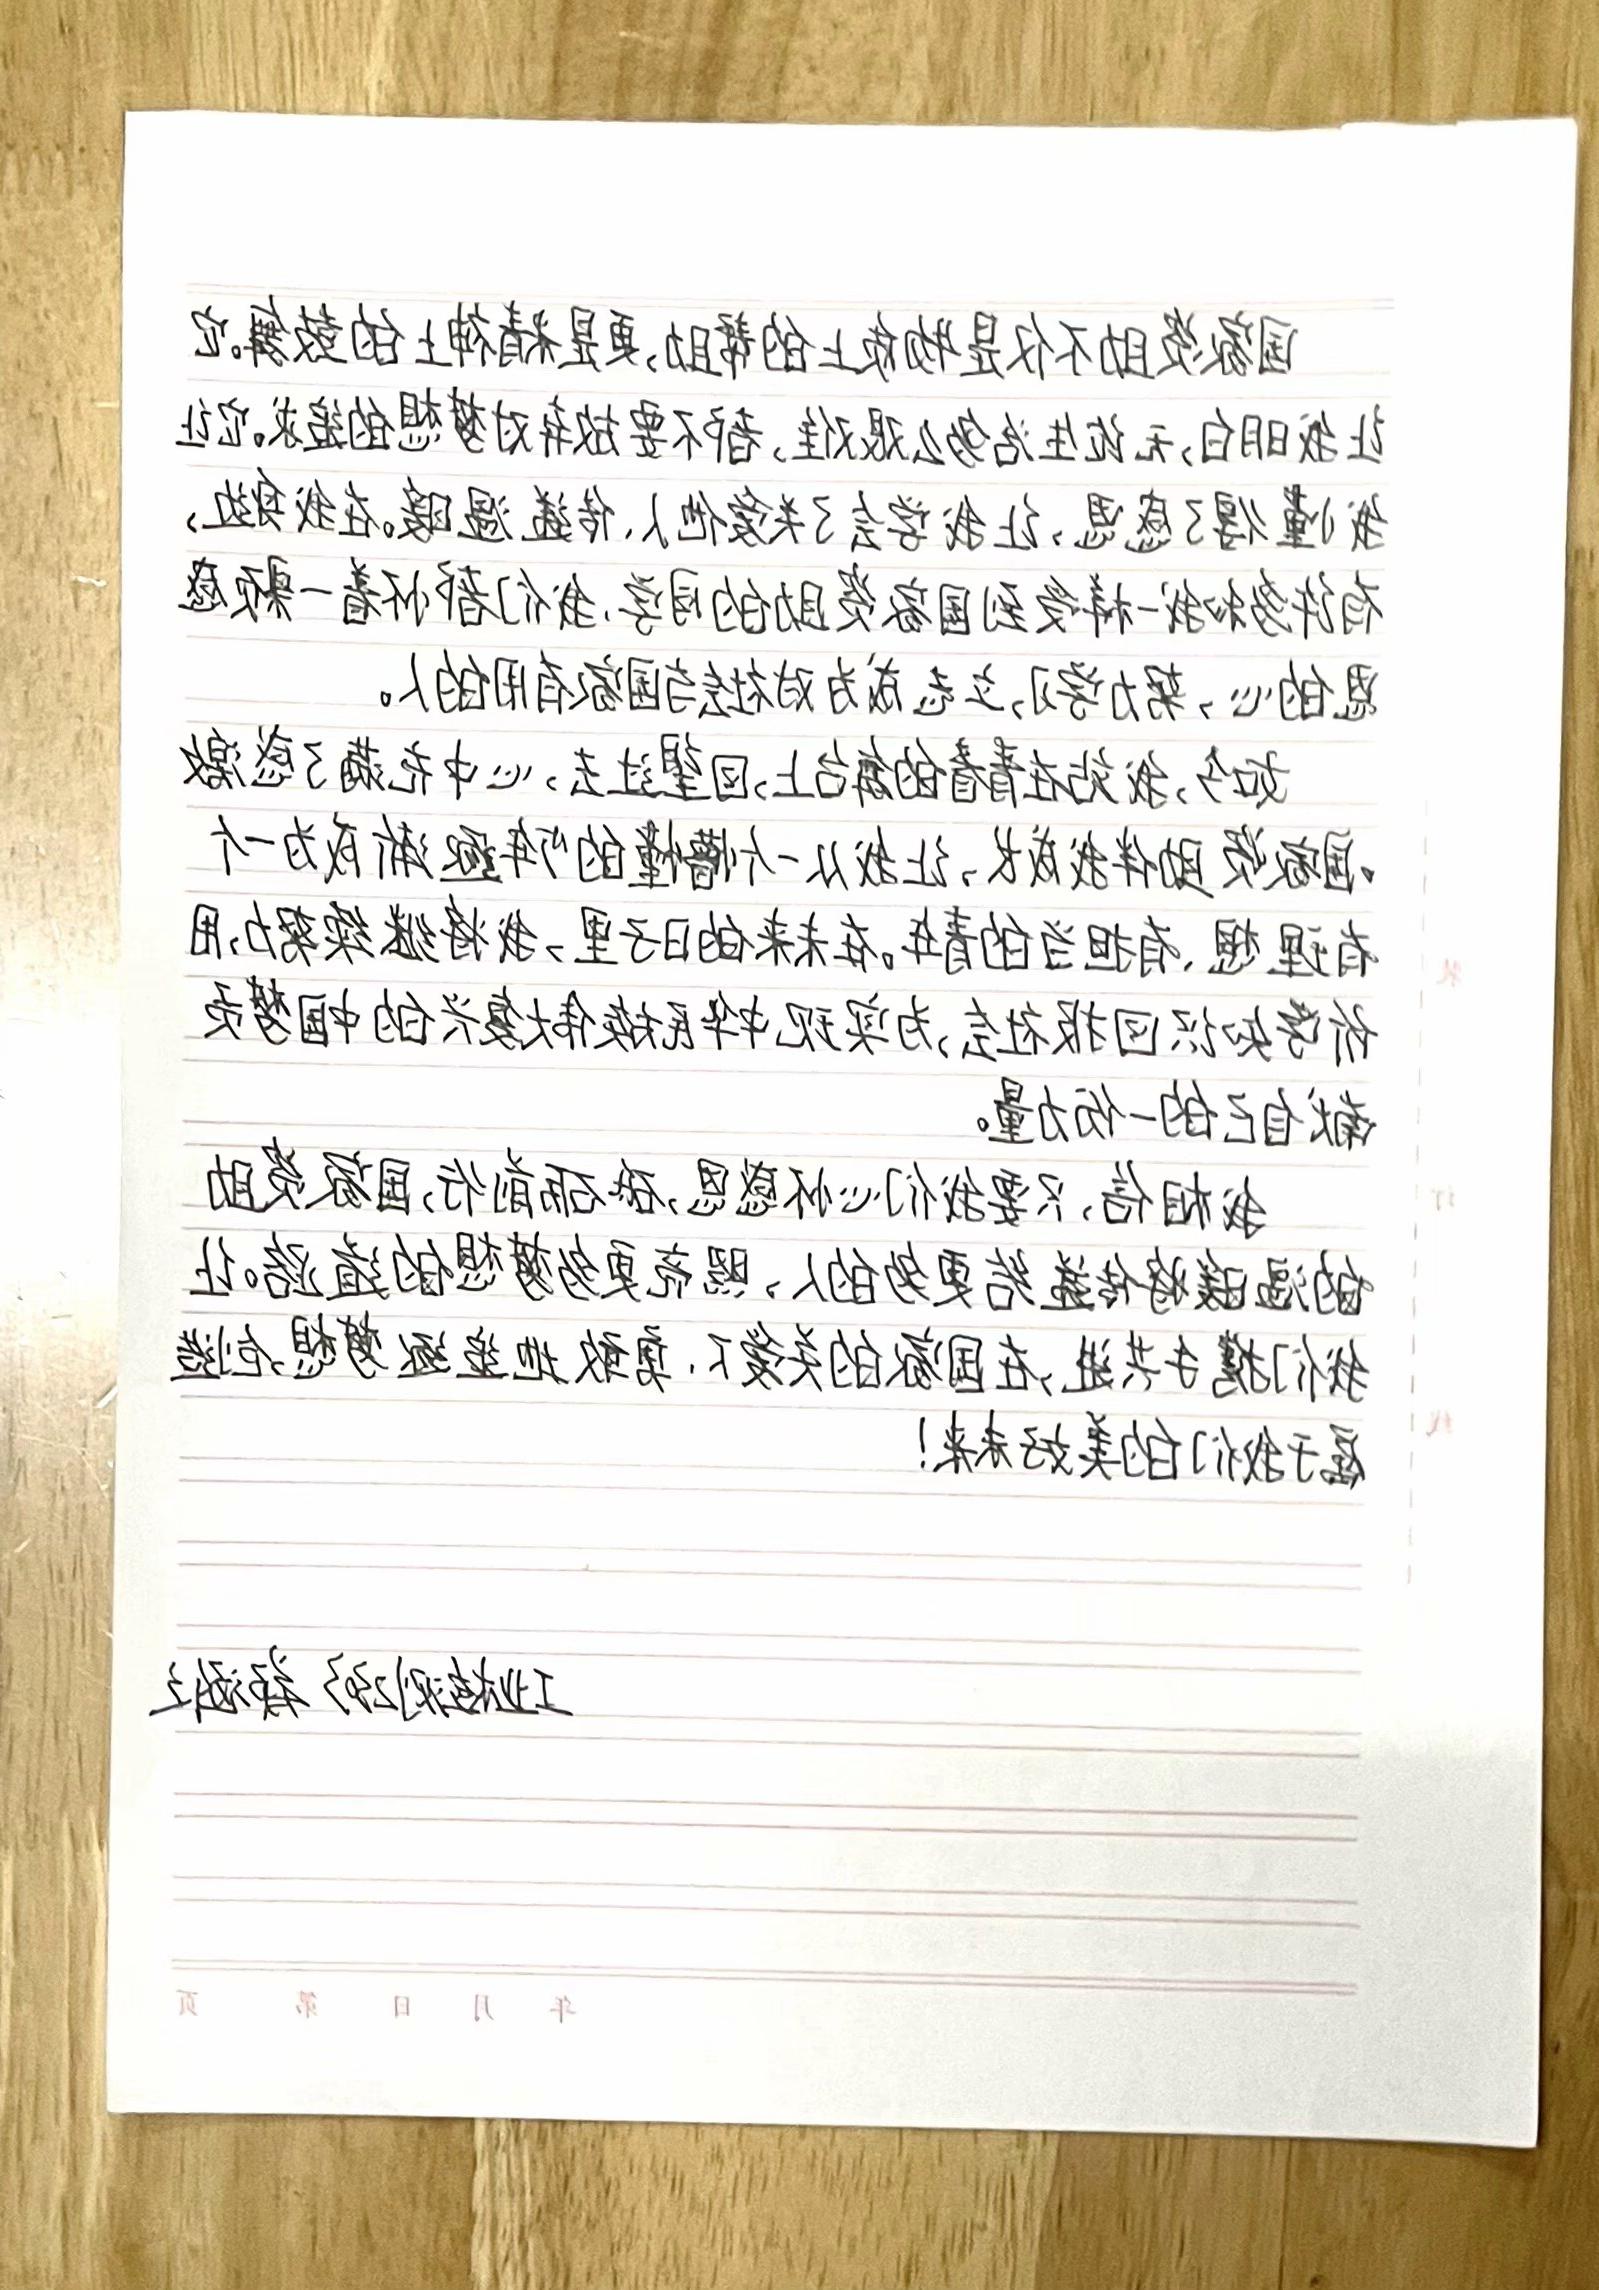 国家资助不仅是物质上的帮助,更是精神上的鼓舞。它
让我明白,无论生活多么艰难,都不要放弃对梦想的追求。它让
我懂得了感恩,让我学会了关爱他人、传递温暖。在我身边,
有许多和我一样受到国家资助的同学,我们都怀着一颗感
恩的心,努力学习,立志成为对社会与国家有用的人。
如今,我站在青春的舞台上,回望过去,心中充满了感激
。国家资助伴我成长,让我从一个懵懂的少年逐渐成为一个
有理想、有担当的青年。在未来的日子里,我将继续努力,用
所学知识回报社会,为实现中华民族伟大复兴的中国梦贡
献自己的一份力量。
我相信,只要我们心怀感恩,砥砺前行,国家资助
的温暖将传递给更多的人,照亮更多梦想的道路。让
我们携手共进,在国家的关爱下,勇敢地追逐梦想,创造
属于我们的美好未来!
工业检测2303
年 月 日 第 页
装
订
线